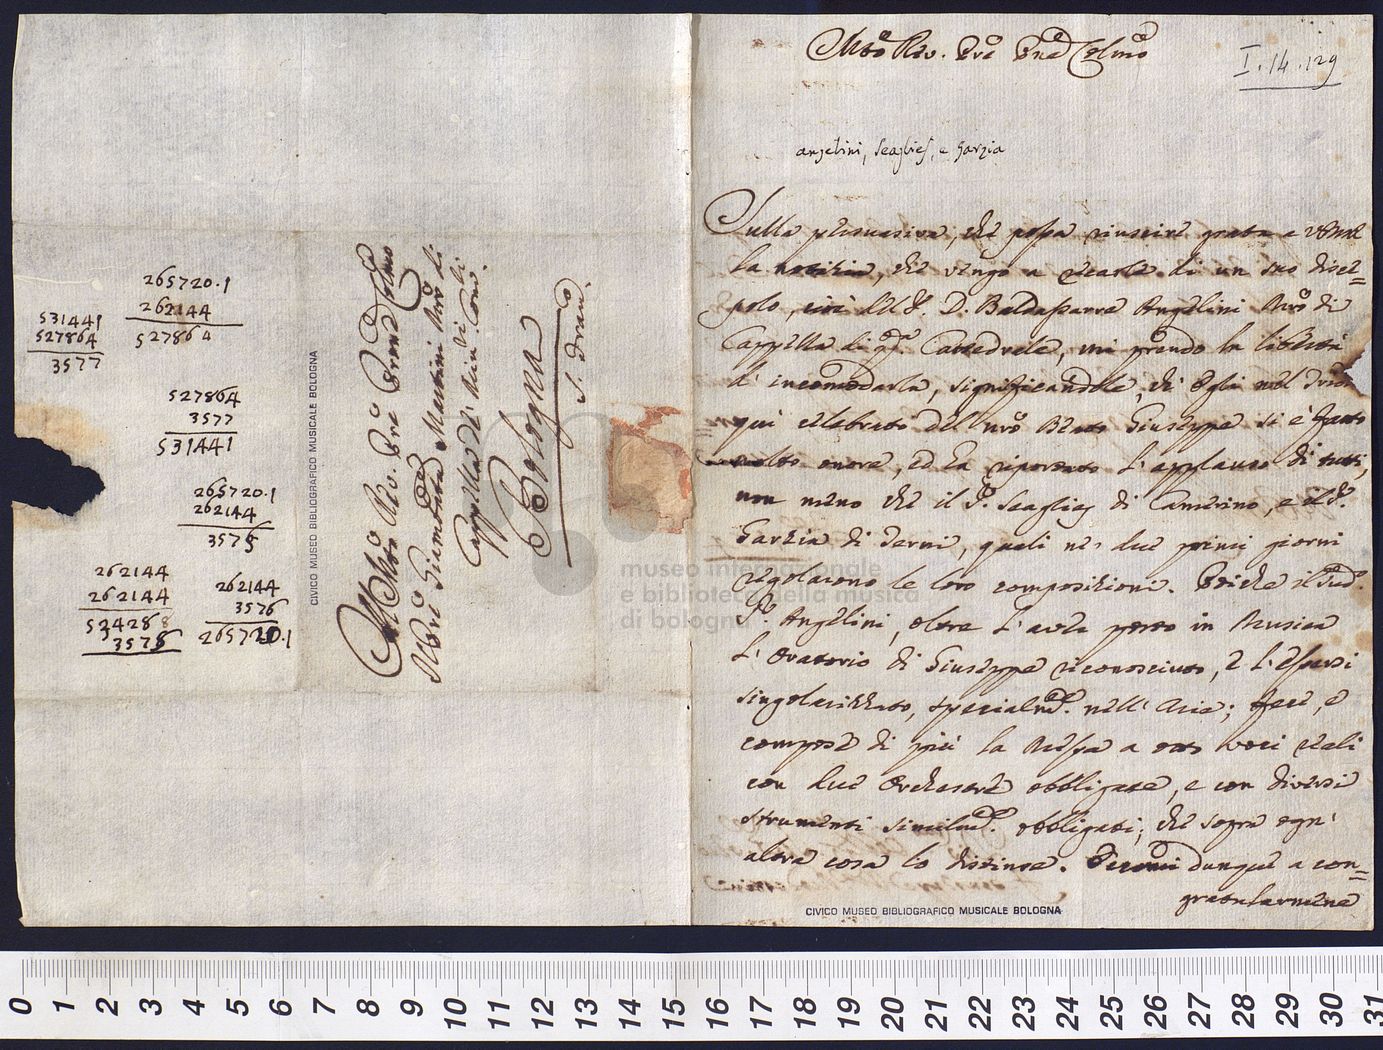 265720.1
262144
527864
531441
527864
3577
527864
3577
531441
265720.1
262144
3575
262144
262144
524288
3576
262144
3576
265720.1
CIVICO MUSEO BIBLIOGRAFICO MUSICALE BOLOGNA
Al Mto Rev. Pre Prone Colmo
Giambatta Martini Mro di
Cappella de' Min: Conv.li di
Bologna
S. Franco
Mto Rev. Pre Pne Colmo
I.14.129
Angelini, Scaglies, e Garzia
Sulla persuasiva, che possa riuscire grata a VRma
la notizia, che vengo a recarle di un suo disce=
polo, cioè del S. D. Baldassarre Angelini Mro di
Cappella di qta Cattedrale, mi prendo la libertà
d'incomodarla, significandole, che Egli nel Triduo
qui celebrato del nro Beato Giuseppe si è fatto
molto onore, ed ha riportato l'applauso di tutti,
non meno che il S. Scaglies di Camerino, e il S.
Garzia di Terni, quali ne' due primi giorni
regolarono le loro composizioni. Poiche il sud.
S. Angelini, oltre l'aver posto in Musica
l'Oratorio di Giuseppe riconosciuto, e l'essersi
singolarizzato, specialmte nell'Arie; fece, e
compose di più la Messa a otto voci reali
con due Orchestre obbligate, e con diversi
strumenti similmte obbligati; che sopra ogn'
altra cosa lo distinse. dunque a con=
gratularmene
CIVICO MUSEO BIBLIOGRAFICO MUSICALE BOLOGNA
museo internazionale
e biblioteca della musica
di bologna
0 1 2 3 4 5 6 7 8 9 10 11 12 13 14 15 16 17 18 19 20 21 22 23 24 25 26 27 28 29 30 31